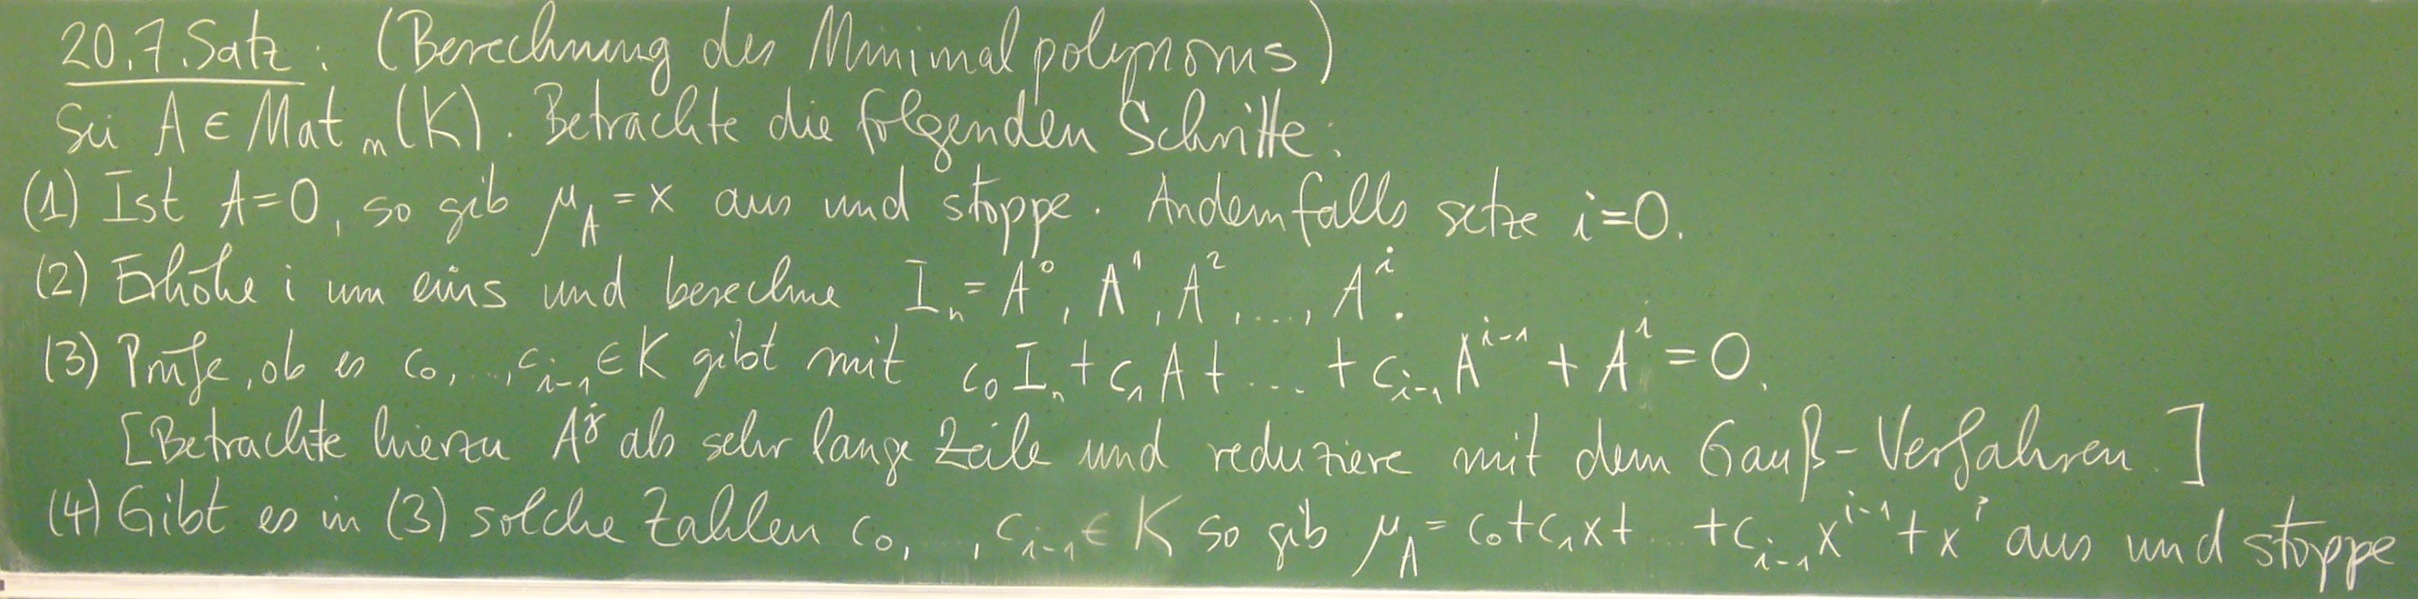 20.7. Satz: (Berechnung des Minimalpolynoms)
Sei A ∈ Mat_n(K). Betrachte die folgenden Schritte:
(1) Ist A=0, so gib μ_A = x aus und stoppe. Andernfalls setze i=0.
(2) Erhöhe i um eins und berechne I_n = A^0, A^1, A^2, ..., A^i.
(3) Prüfe, ob es c_0, ..., c_{i-1} ∈ K gibt mit c_0 I_n + c_1 A + ... + c_{i-1} A^{i-1} + A^i = 0.
[Betrachte hierzu A^j als sehr lange Zeile und reduziere mit dem Gauß-Verfahren.]
(4) Gibt es in (3) solche Zahlen c_0, ..., c_{i-1} ∈ K so gib μ_A = c_0 + c_1 x + ... + c_{i-1} x^{i-1} + x^i aus und stoppe